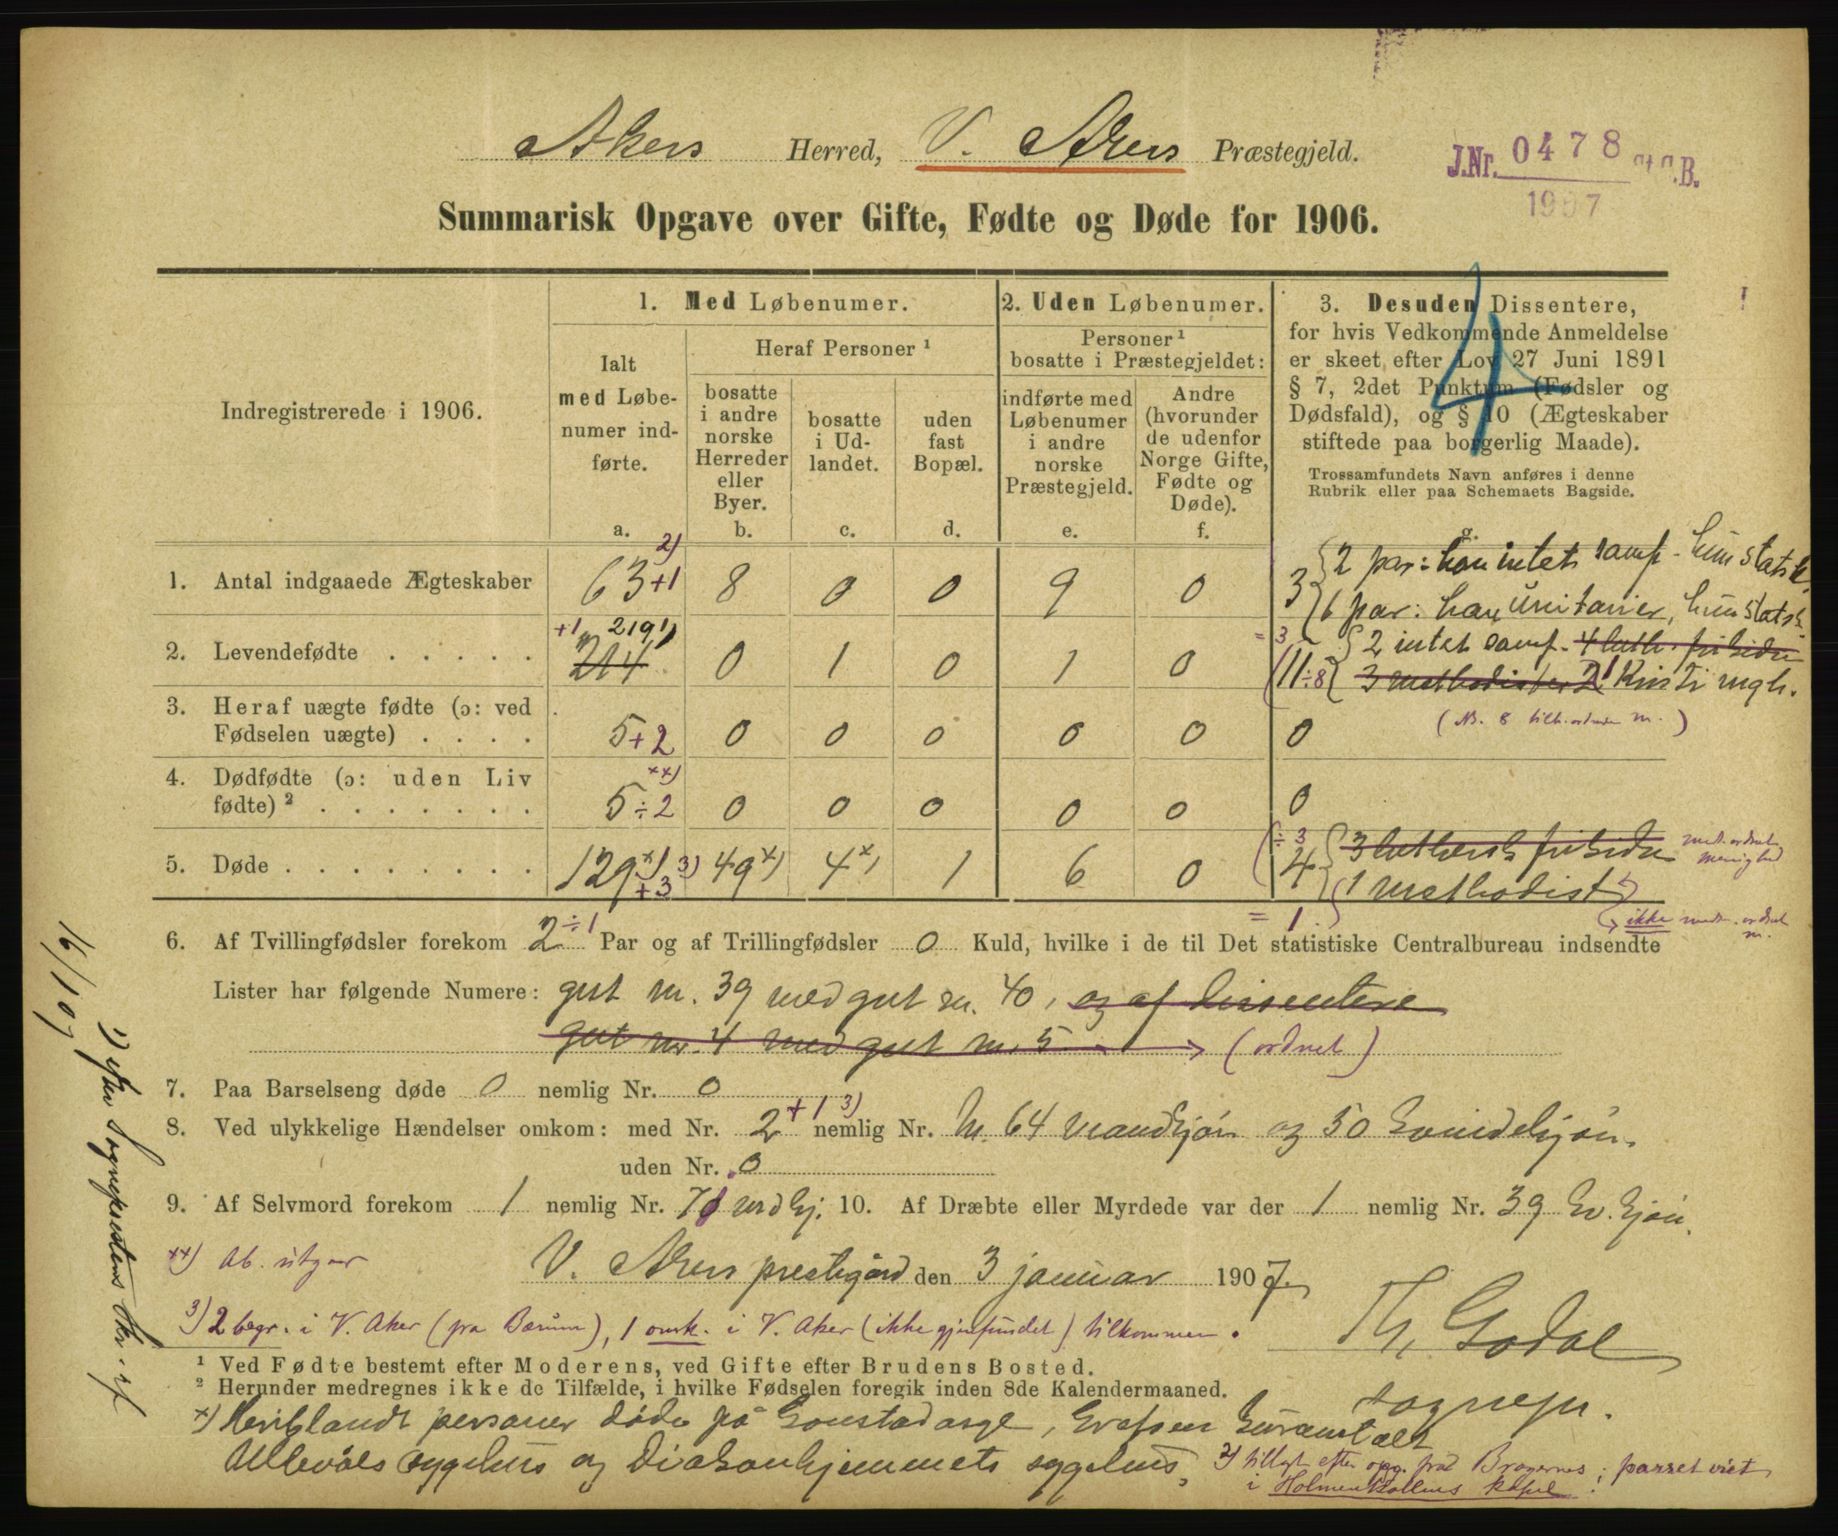 Akers Herred, V. Akers Præstegjeld.
J.Nr. 0478 St.C.B.
1907
Summarisk Opgave over Gifte, Fødte og Døde for 1906.
4
Indregistrerede i 1906.
1. Med Løbenumer.
2. Uden Løbenumer.
3. Desuden Dissentere,
for hvis Vedkommende Anmeldelse
er skeet efter Lov 27 Juni 1891
§ 7, 2det Punktum (Fødsler og
Dødsfald), og § 10 (Ægteskaber
stiftede paa borgerlig Maade).
Trossamfundets Navn anføres i denne
Rubrik eller paa Schemaets Bagside.
g.
Ialt
med Løbe-
numer ind-
førte.
a.
Heraf Personer ¹
bosatte
i andre
norske
Herreder
eller
Byer.
b.
bosatte
i Ud-
landet.
c.
uden
fast
Bopæl.
d.
Personer ¹
bosatte i Præstegjeldet:
indførte med
Løbenumer
i andre
norske
Præstegjeld.
e.
Andre
(hvorunder
de udenfor
Norge Gifte,
Fødte og
Døde).
f.
1. Antal indgaaede Ægteskaber 63 +1 2) 8 0 0 9 0 3 { 2 par: han intet samf. hun statsk.
par: han unitarier, hun statsk.
2. Levendefødte . . . . . +1 219 1) 214 0 1 0 1 0 = 3 (11 ÷ 8 { 2 intet samf. 4 luth. frikirke
3 methodister 2 1 Kristi mgh.
(NB. 8 tilh. ordnede m.)
3. Heraf uægte fødte (ɔ: ved
Fødselen uægte) . . . . 5 +2 0 0 0 0 0 0
4. Dødfødte (ɔ: uden Liv
fødte) ² . . . . . . . 5 ÷2 xx) 0 0 0 0 0 0
5. Døde . . . . . . . . . 129 x) +3 3) 49 x) 4 x) 1 6 0 ÷ 3 4 { 3 luthersk frikirke
1 methodist
medl. ordnet
menighed
= 1. ikke medl. ordnet
m.
6. Af Tvillingfødsler forekom 2 ÷1 Par og af Trillingfødsler 0 Kuld, hvilke i de til Det statistiske Centralbureau indsendte
Lister har følgende Numere: gut nr. 39 med gut nr. 40, og af dissentere
gut nr. 4 med gut nr. 5 (ordnet)
7. Paa Barselseng døde 0 nemlig Nr. 0
8. Ved ulykkelige Hændelser omkom: med Nr. 2 +1 3) nemlig Nr. N. 64 mandkjøn og 50 kvindekjøn.
uden Nr. 0
9. Af Selvmord forekom 1 nemlig Nr. 71 mdkj. 10. Af Dræbte eller Myrdede var der 1 nemlig Nr. 39 kv. kjøn.
V. Akers prestegård den 3 januar 1907.
Th. Godal
sognepr.
xx) Ab. utgaar
3) 2 begr. i V. Aker (fra Bærum), 1 omk. i V. Aker (ikke gjenfundet) tilkommer.
¹ Ved Fødte bestemt efter Moderens, ved Gifte efter Brudens Bosted.
² Herunder medregnes ikke de Tilfælde, i hvilke Fødselen foregik inden 8de Kalendermaaned.
x) Heriblandt personer døde på Gaustad asyl, Grefsen kuranstalt
Ullevåls sygehus og Diakonhjemmets sygehus.
2) tillagt efter opg. fra Bragernes; parret viet
i Holmenkollens Kapel.
16/1 07
1) efter Sognepræstens skr. af